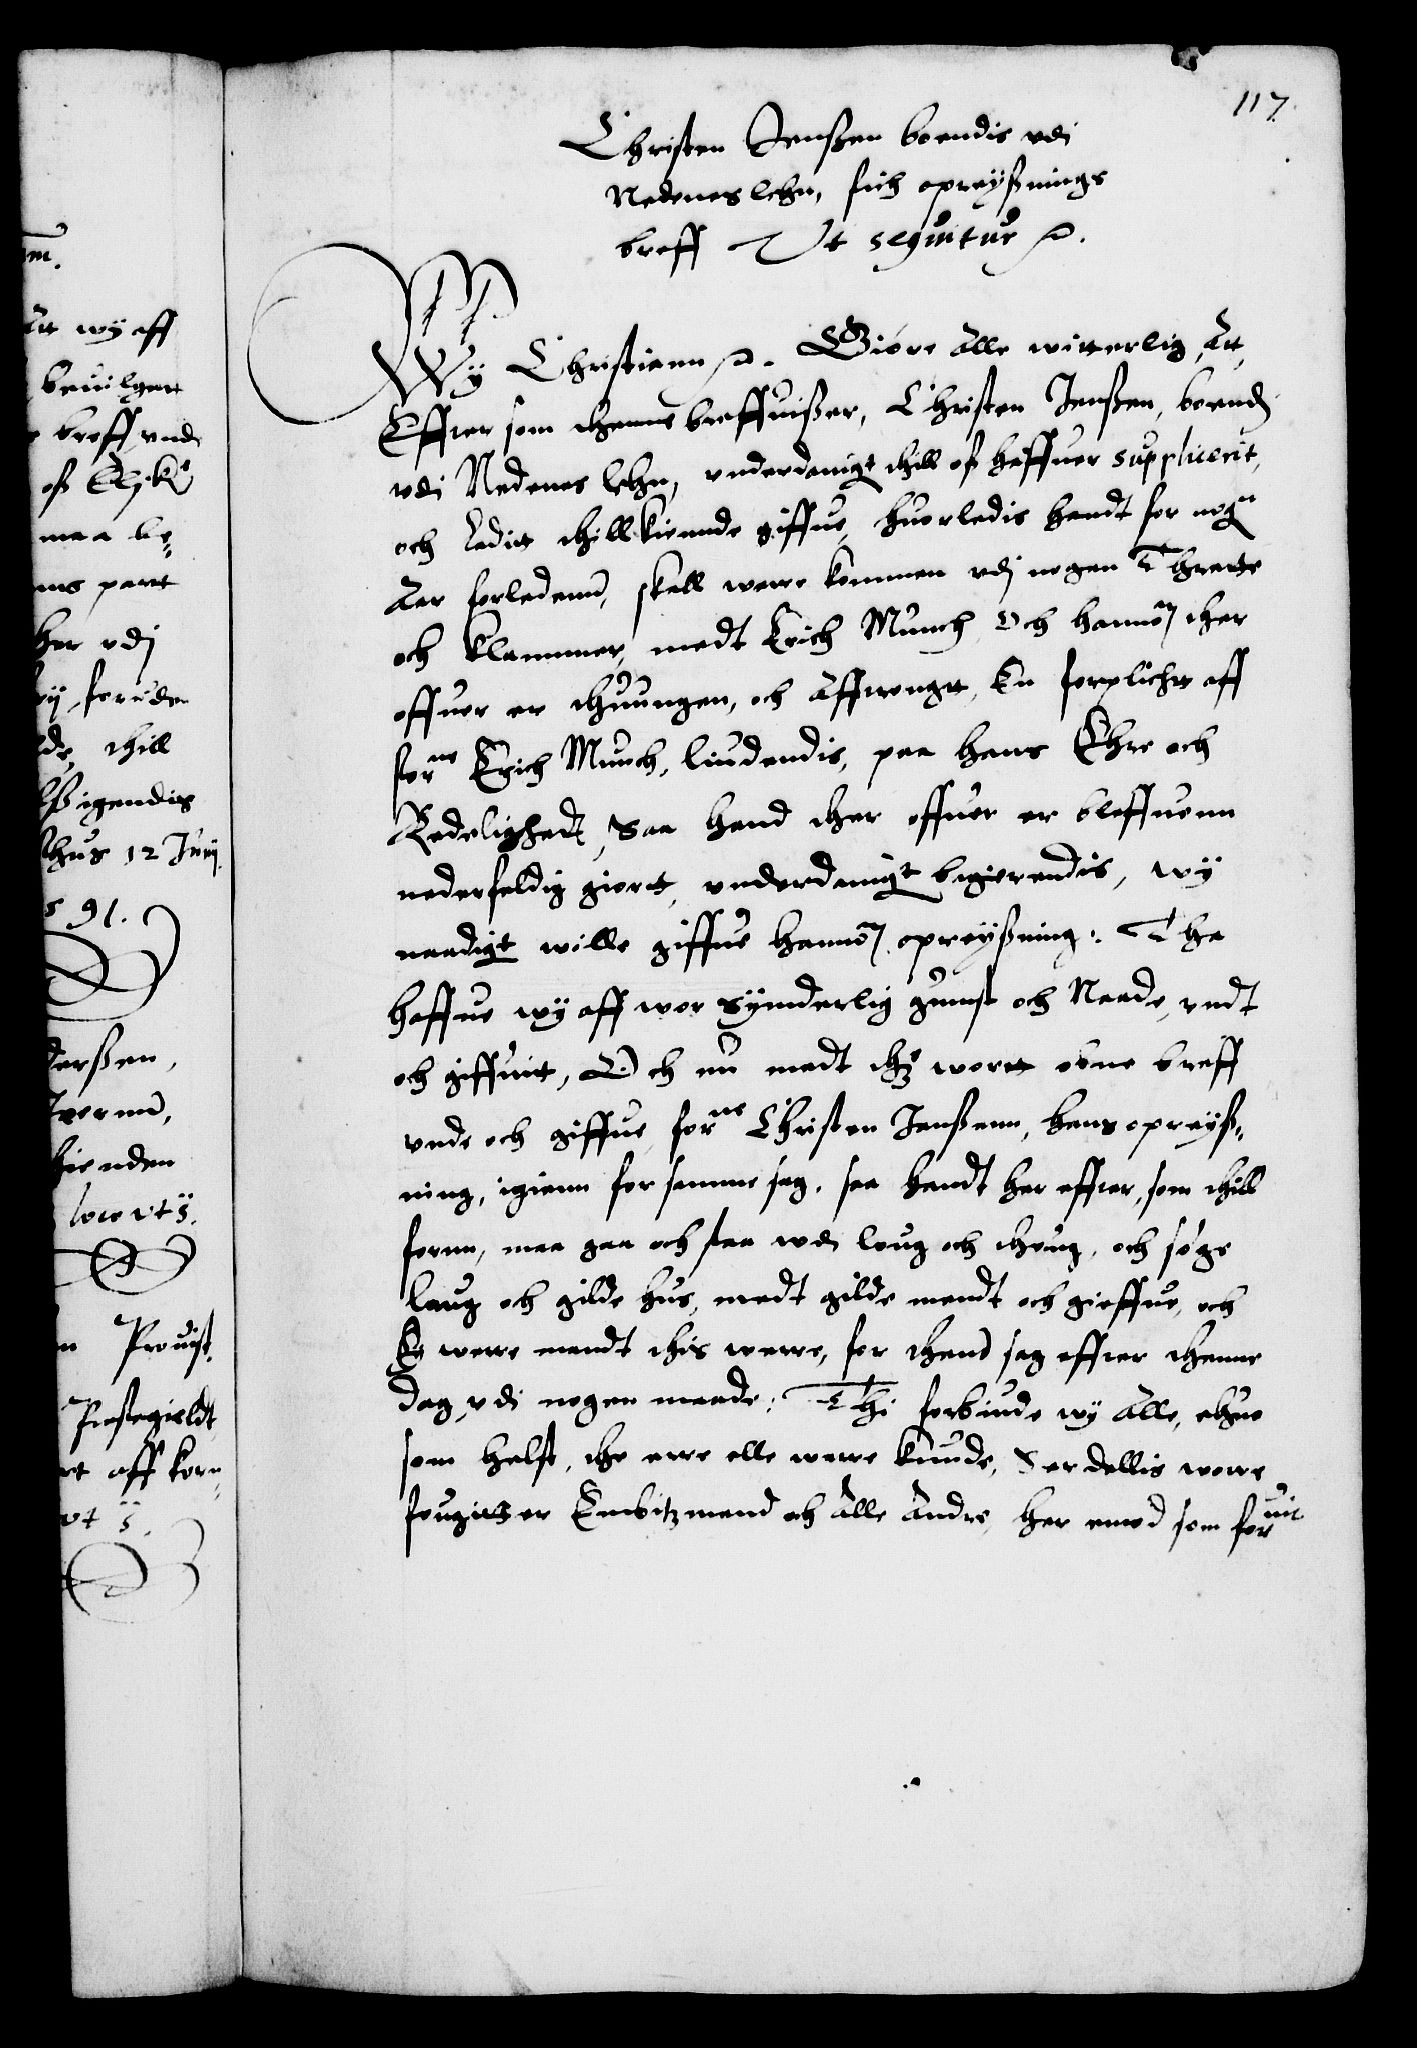 117.
Christen Jenßen boendis udi
Nedenes lehn, fich opreyßnings
breff Ut sequitur
Wy Christiann Giøre alle witterlig, Att
Effter som thenne breffuißer, Christen Jenßen, boend
udi Nedenes lehn, underdanigt thill oß haffuer supplicerit,
och ladit thillkiennde giffue, huorledis handt for nogn
Aar forledenn, skall were kommen udj nogen Thrette
och klammer, medt Erich Munch, Och hannom ther
offuer er thuungen, och afftrengtt, En forplicht aff
forne Erich Munch, liudendis, paa hans Ehre och
Redelighedt, Saa hand ther offuer er bleffuenn
nederfeldig giortt, underdanigt begierendis, wy
naadigt wille giffue hannom opreyßning: Tha
haffue wy aff wor synderlig gunst och Naade, undt
och giffuit, Och nu medt thz wortt obne breff
unde och giffue forne Christen Jenßenn, hans opreyß-
ning, igienn for samme sag, saa handt her effter, som thill
fornn, maa gaa och staa udi laug och thoug, och søge
laug och gilde hus, medt gilde mendt och gieffue, och
Ey were mendt this werre, for thend sag effter thenne
dag, udi nogen maade: Thi forbiude wy alle, ehuo
som helst, the ere elle were kunde, Serdellis wore
fougitter Embitzmend och alle Andre, her emod som foruit
wy aff
beuilgett
breff, unde
oß Elsk
maa be-
ns partt
her udj
foruden
thill
igendis
hus 12 Junij.
91.
derßen,
hienden
loco ut s.
Prouist.
Prestegieldt
aff korn
ut s.